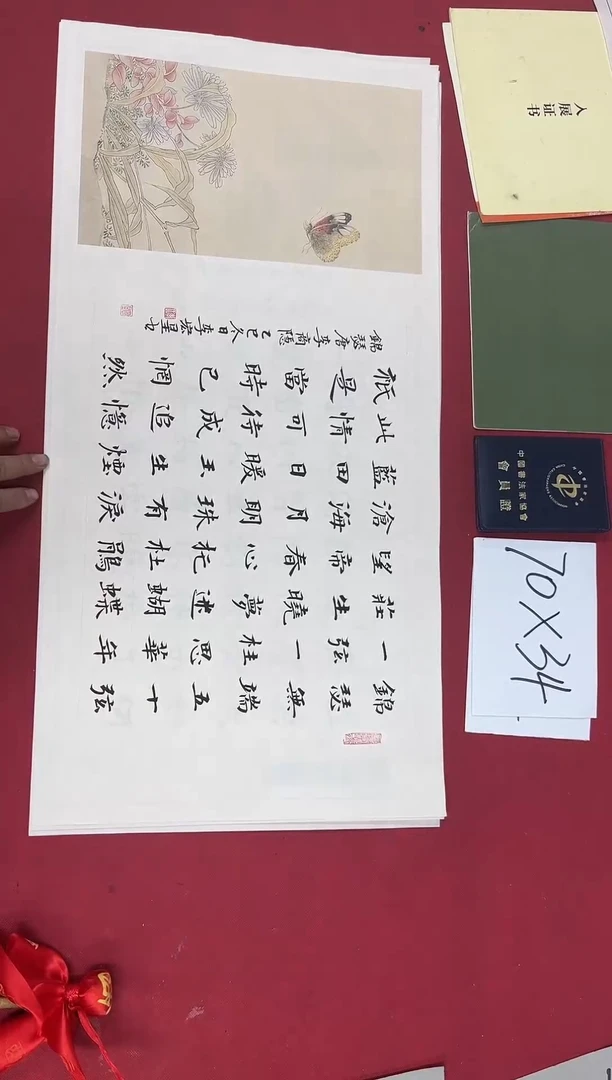 錦瑟無端五十弦
一弦一柱思華年
莊生曉夢迷蝴蝶
望帝春心托杜鵑
滄海月明珠有淚
藍田日暖玉生煙
此情可待成追憶
祇是當時已惘然
錦瑟唐李商隱乙巳冬日李宏
入展证书
中國書法家協會
會員證
70X34